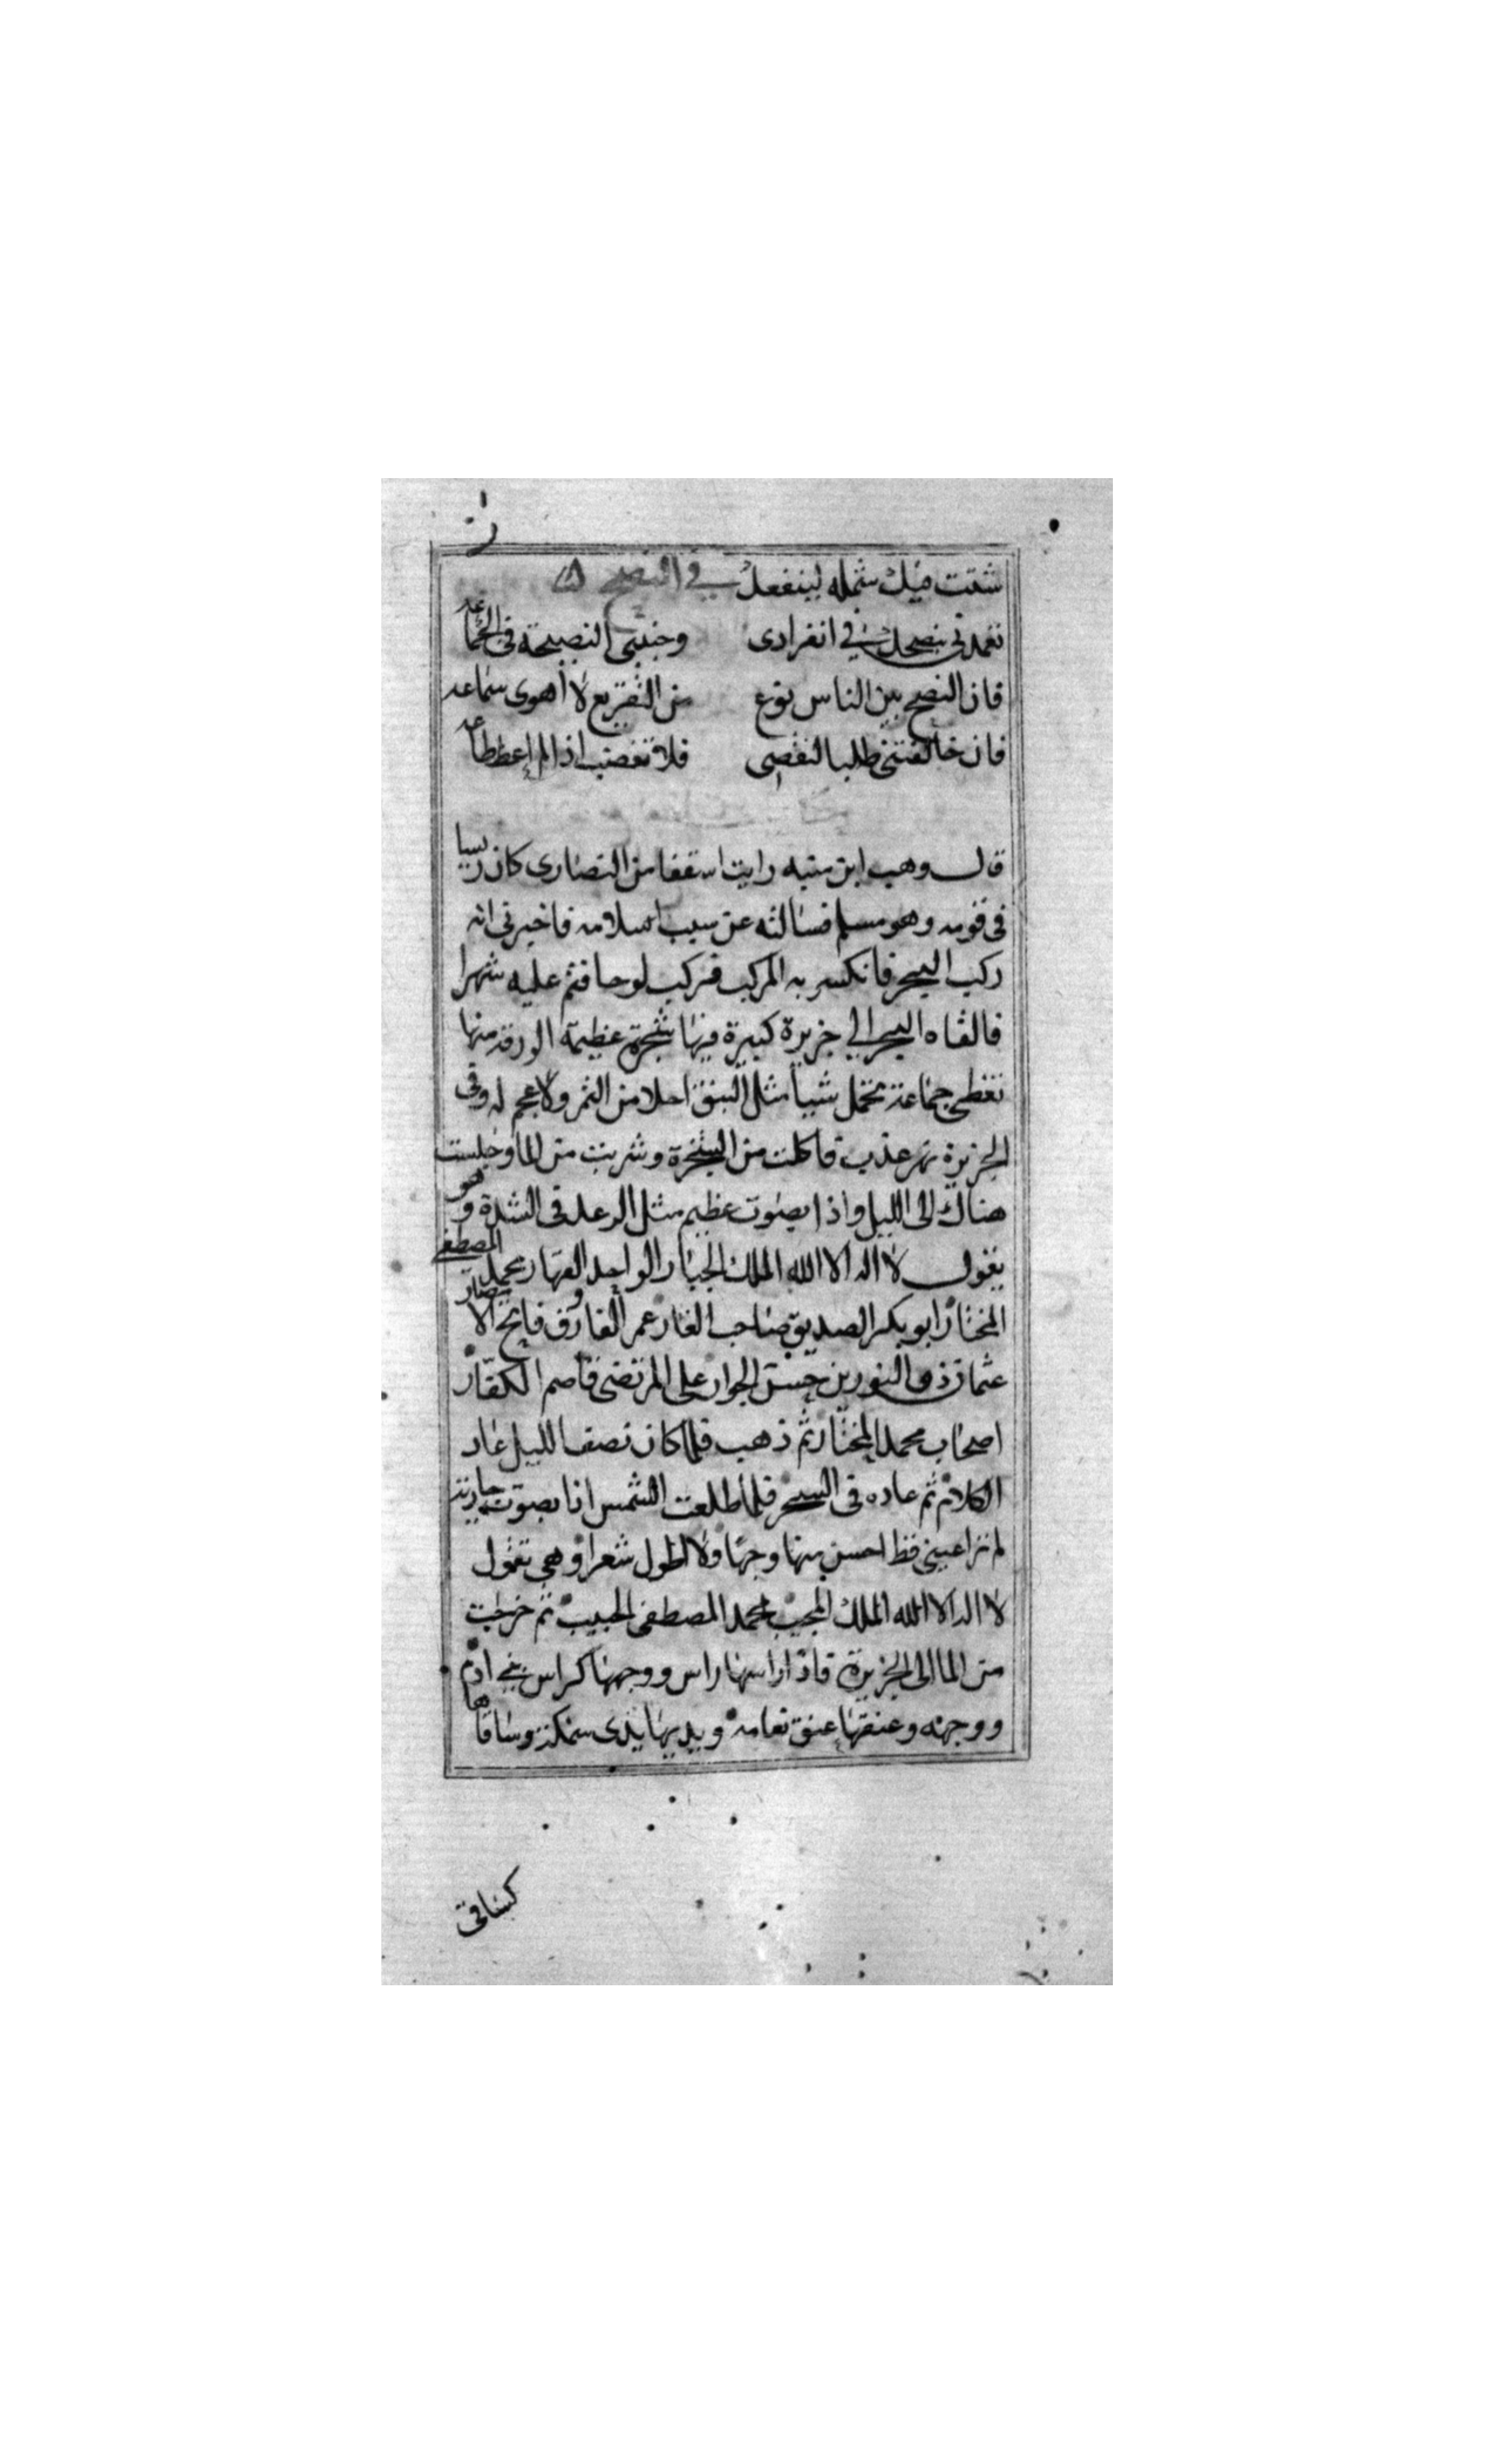 شتت فيك شمله لينفعك في النصح
تعمدني بنصحك في انفرادي وجنبني النصيحة في الجماعه
فان النصح بين الناس نوع من التقريع لا اهوى سماعه
فان خالفتني طلبا لنقصي فلا تغضب اذا لم اعط طاعه
قال وهب ابن منبه رايت اسقفا من النصارى كان ريسا
في قومه وهو مسلم فسالته عن سبب اسلامه فاخبرني انه
ركب البحر فانكسر به المركب فركب لوحا فتم عليه شهرا
فالقاه البحر الي جزيرة كبيرة فيها شجرة عظيمة الورقة منها
تغطي جماعة تحمل شيا مثل النبق احلا من التمر ولا عجم له وفي
الجزيرة نهر عذب فاكلت من الشجرة وشربت من الما وجلست
هناك الى الليل واذا بصوت عظيم مثل الرعد في الشدة وهو
يقول لا اله الا الله الملك الجبار الواحد القهار محمد المصطفى
المختار ابو بكر الصديق صاحب الغار عمر الفاروق فاتح الامصار
عثمان ذو النورين حسن الجوار علي المرتضى قاصم الكفار
اصحاب محمد المختار ثم ذهب فلما كان نصف الليل عاد
الكلام ثم عاده في السحر فلما طلعت الشمس اذا بصوت جارية
لم تر اعيني قط احسن منها وجها ولا اطول شعرا وهي تقول
لا اله الا الله الملك المجيب محمد المصطفى الحبيب ثم خرجت
من الما الى الجزيرة فاذا راسها راس ووجهها كراس بني ادم
ووجهه وعنقها عنق نعامه ويديها يدى سمكة وساقاها
كساقي